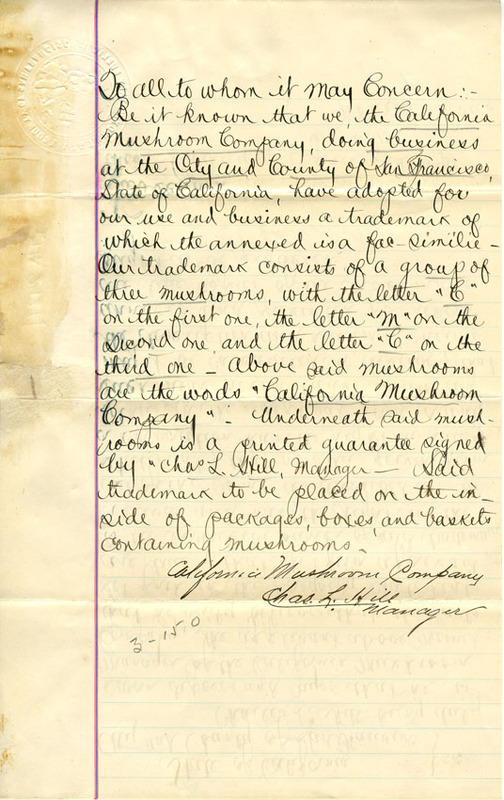 To all to whom it May Concern:-
Be it known that we, the California
Mushroom Company, doing business
at the City and County of San Francisco,
State of California, have adopted for
our use and business a trademark of
which the annexed is a fac-similie -
Our trademark consists of a group of
three mushrooms, with the letter "C"
on the first one, the letter "M" on the
second one, and the letter "C" on the
third one - above said mushrooms
are the words "California Mushroom
Company". Underneath said mush-
rooms is a printed guarantee signed
by "Chas L. Hill, Manager - Said
trademark to be placed on the in-
side of packages, boxes, and baskets
containing mushrooms -
California Mushroom Company
Chas. L. Hill
Manager
3-150